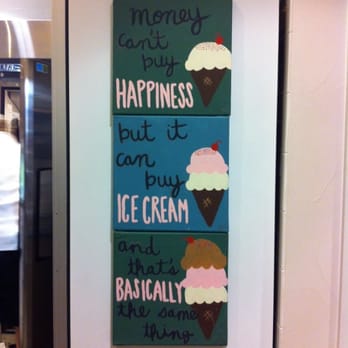 money
can't
buy
HAPPINESS
but it
can
buy
ICE CREAM
and
that's
BASICALLY
the same
thing